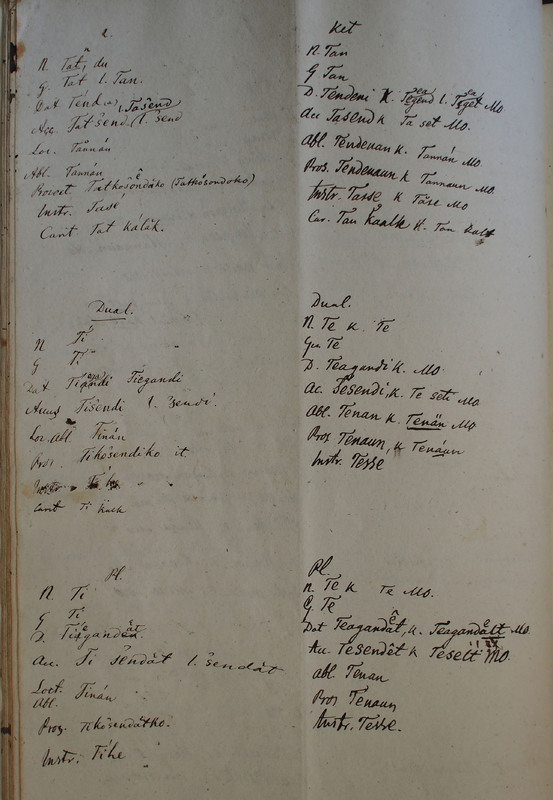 2.
N. Tat, du
G. Tat l. Tan.
Dat. Tend
Acc. Tatšend l. šend Tašend
Loc. Tannán
Abl. Tannán
Prosect Tatkosendáko (Tatkosondoko)
Instr. Tase
Carit Tat kálák.
Dual.
N Ti
G Ti
Dat. Tigandi Tiegandi
Accus Tišendi l. šendi.
Loc. Abl Tinán
Pros. Tikošendiko it.
Instr.
Carit Ti kack
Pl.
N. Ti
G Ti
D. Tieganden
Acc. Ti šendât l. šendát
Loct. Tinán
Abl.
Pros. Tikosendátko.
Instr. Tihe
Ket
N. Tan
G Tan
D. Tendeni K. Tegend l. Tget Mo
Acc Tasend k Ta set Mo.
Abl. Tendenan K. Tannán Mo.
Pros. Tendenaun k. Tannaun Mo.
Instr. Tasse k Tase Mo
Car. Tan Kaalk K. Tan
Dual.
N. Te K. Te
Gen Te
D. Teagandi K. Mo.
Ac. Tesendi, K. Te seti Mo
Abl. Tenan K. Tenän Mo
Pros Tenaun, K Tenáun
Instr. Tesse
Pl.
N. Te K Te Mo.
G Te
Dat Teagandât, K. Teagandält Mo
Acc. Tesendêt K Teseit Mo
Abl. Tenan
Pros Tenaun
Instr. Tesse.